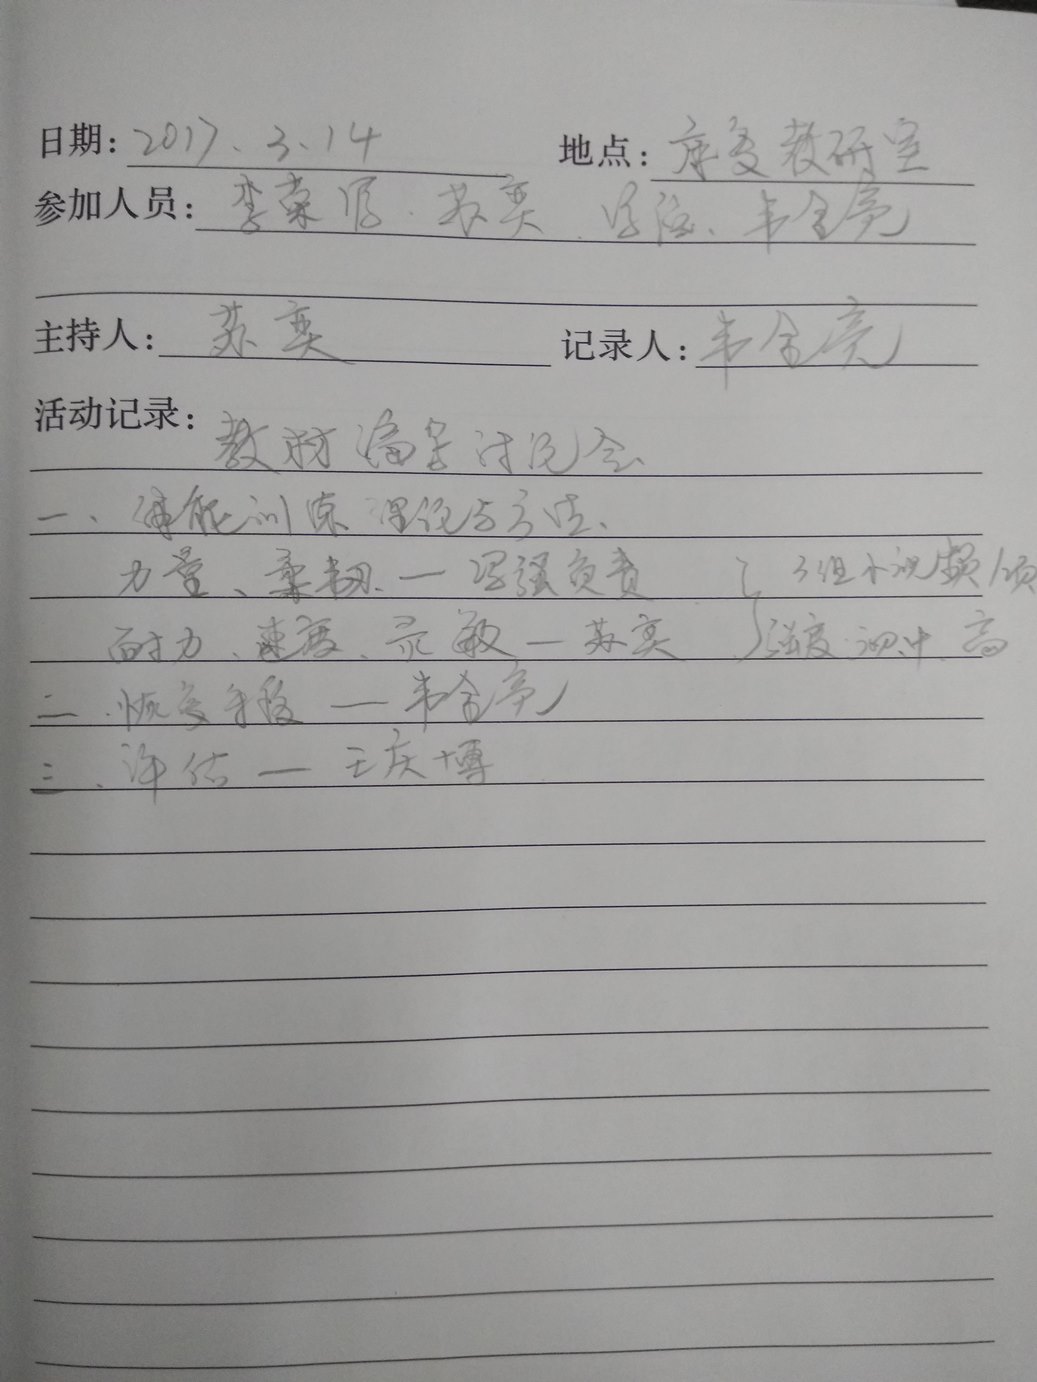 日期：2017.3.14 地点：康复教研室
参加人员：李荣 苏奕、韦金亮
主持人：苏奕 记录人：韦金亮
活动记录：
教材编写讨论会
一、体能训练理论与方法、
力量、柔韧 — 负责 3组小视频/项
耐力、速度、灵敏 — 苏奕 强度 初、中、高
二、恢复手段 — 韦金亮
三、评估 — 王庆博